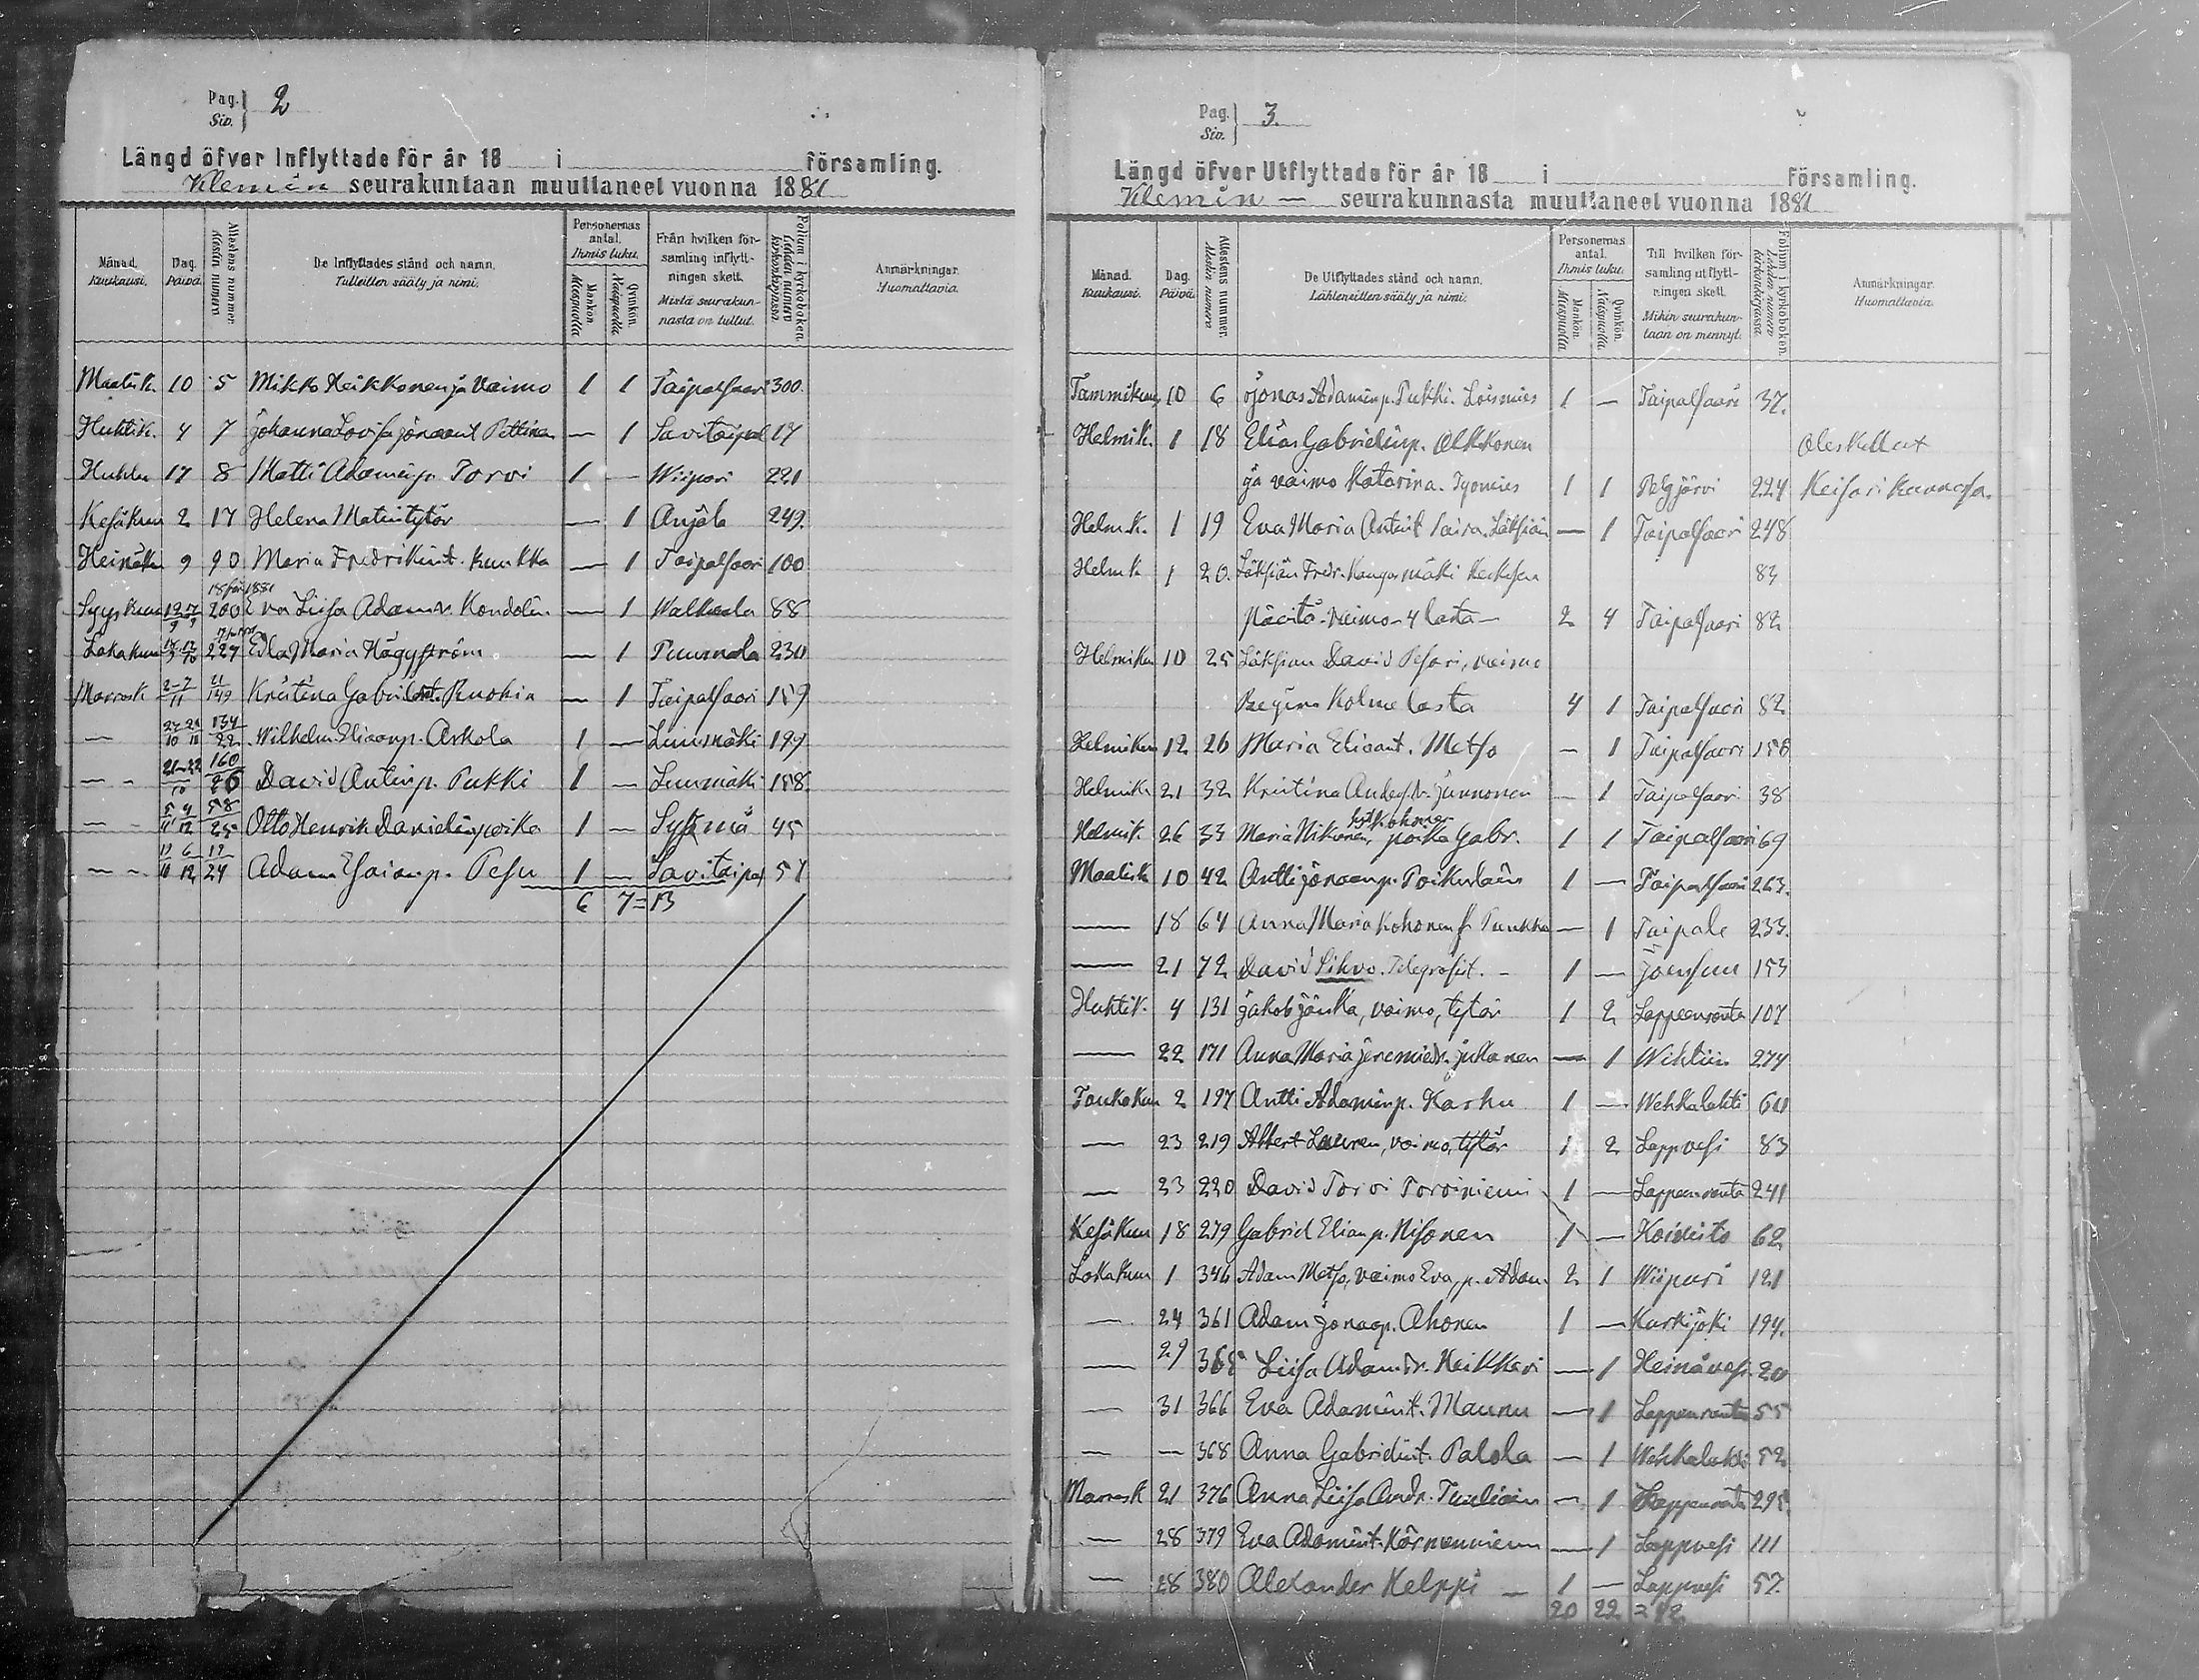 Pag. Siv. 2
Längd öfver Inflyttade för år 18 i församling.
Klemin seurakuntaan muuttaneet vuonna 1881
Månad. Kuukausi. Dag. Päivä. Attestens nummer. Alestin numero De Inflyttades stånd och namn. Tulleitten sääty ja nimi. Personernas antal. Ihmis luku. Mankön. Miespuolia Qvinkön. Naispuolia Från hvilken församling inflyttningen skett. Mistä seurakunnasta on tullut. Folium i kyrkoboken. Lehden numero kirkonkirjassa Anmärkningar. Huomattavia.
Maalisk. 10 5 Mikko Heikkonen ja Vaimo 1 1 Taipalsaari 300.
Huhtik. 4 7 Johanna Lovisa Jonaant Pettinen — 1 Savitaipal 17
Huhtku 17 8 Matti Adaminp. Torvi 1 — Wiipori 221
Kesäkuu 2 17 Helena Matintytär — 1 Anjala 249.
Heinäku 9 90 Maria Fredrikint. Kuukka — 1 Taipalsaari 100
Syyskuu 200 Eva Liisa Adamdr. Kondolin — 1 Walkeala 88
Lokakuu 227 Edla Maria Häggström — 1 Puumala 230
Marrask 2-7/11 11/149 Kristina Gabrielint. Ruohia — 1 Taipalsaari 159
— 134/22 Wilhelm Eliaanp. Askola 1 — Luumäki 199
— - 21-22/10 160/26 David Antinp. Pukki 1 — Luumäki 158
— - 5/11 4/12 58/25 Otto Henrik Davidinpoika 1 — Sysmä 45
— - 19/11 6/12 19/24 Adam Esaianp. Pesu 1 — Savitaipal 57
6 7=13
Pag. Siv. 3.
Längd öfver Utflyttade för år 18 i församling.
Klemin — seurakunnasta muuttaneet vuonna 1881
Månad. Kuukausi. Dag. Päivä. Attestens nummer. Alestin numero De Utflyttades stånd och namn. Lähteneitten sääty ja nimi. Personernas antal. Ihmis luku. Mankön. Miespuolia. Qvinkön. Naispuolia. Till hvilken församling utflyttningen skett. Mihin seurakuntaan on mennyt. Folium i kyrkoboken. Lehden numero kirkonkirjassa. Anmärkningar. Huomattavia.
Tammikuu 10 6 Joonas Adaminp. Pukki. Loismies 1 — Taipalsaari 37.
Helmik. 1 18 Elias Gabrielinp. Olkkonen Oleskellut
ja vaimo Katarina. Työmies 1 1 Pelgjärvi 224 Keisarikunnassa.
Helm.k. 1 19 Eva Maria Antint Saira. Läksiäin — 1 Taipalsaari 248
Helm.k 1 20. Läksiän Fredr. Kangasmäki 84
vaimo - 4 lasta — 2 4 Taipalsaari 82
Helmiku 10 25 Läksiän David Pesari, vaimo
Regina Kolme lasta 4 1 Taipalsaari 82
Helmikuu 12 26 Maria Eliaant. Metso - 1 Taipalsaari 158
Helmik. 21 32 Kristina Andersdr. Junnonen - 1 Taipalsaari 38
Helmik. 26 33 Maria Nikunen, poika Gabr. 1 1 Taipalsaari 69
Maalisk 10 42 Antti Joonaanp. Poikulain 1 — Taipalsaari 263.
— 18 64 Anna Maria Kohonen f. Puukka — 1 Taipale 233.
— 21 72 David Sihvo. Telegrafist. - 1 — Joensuu 153
Huhtik. 4 131 Jakob Jäuska, vaimo, tytär 1 2 Lappeenranta 107
— 22 171 Anna Maria Jeremiedr. Jukkonen — 1 Wihtiin 274
Toukokuu 2 197 Antti Adaminp. Karhu 1 — Wehkalahti 60
— 23 219 Albert Lauren, vaimo, tytär 1 2 Lappvesi 83
— 23 220 David Torvi Torviniemi 1 — Lappeenranta 241
Kesäkuu 18 279 Gabriel Elianp. Nisonen 1 — Koivisto 62
Lokakuu 1 346 Adam Metso, vaimo Eva, p. Adam 2 1 Wiipuri 121
— 24 361 Adam Jonaap. Ahonen 1 — Kurkijoki 194.
— 29 365 Liisa Adamdr. Heikkeri — 1 Heinävesi 20
— 31 366 Eva Adamint. Maunu — 1 Lappenranta 55
— — 368 Anna Gabrielint. Palola — 1 Wehkalahti 52
Marrask 21 376 Anna Liisa Andr. Tuuliain — 1 Lappenranta 295.
— 28 379 Eva Adamint. Kärnänniemi — 1 Lappvesi 111
— 28 380 Alexander Helppi — 1 — Lappvesi 57.
20 22 = 42